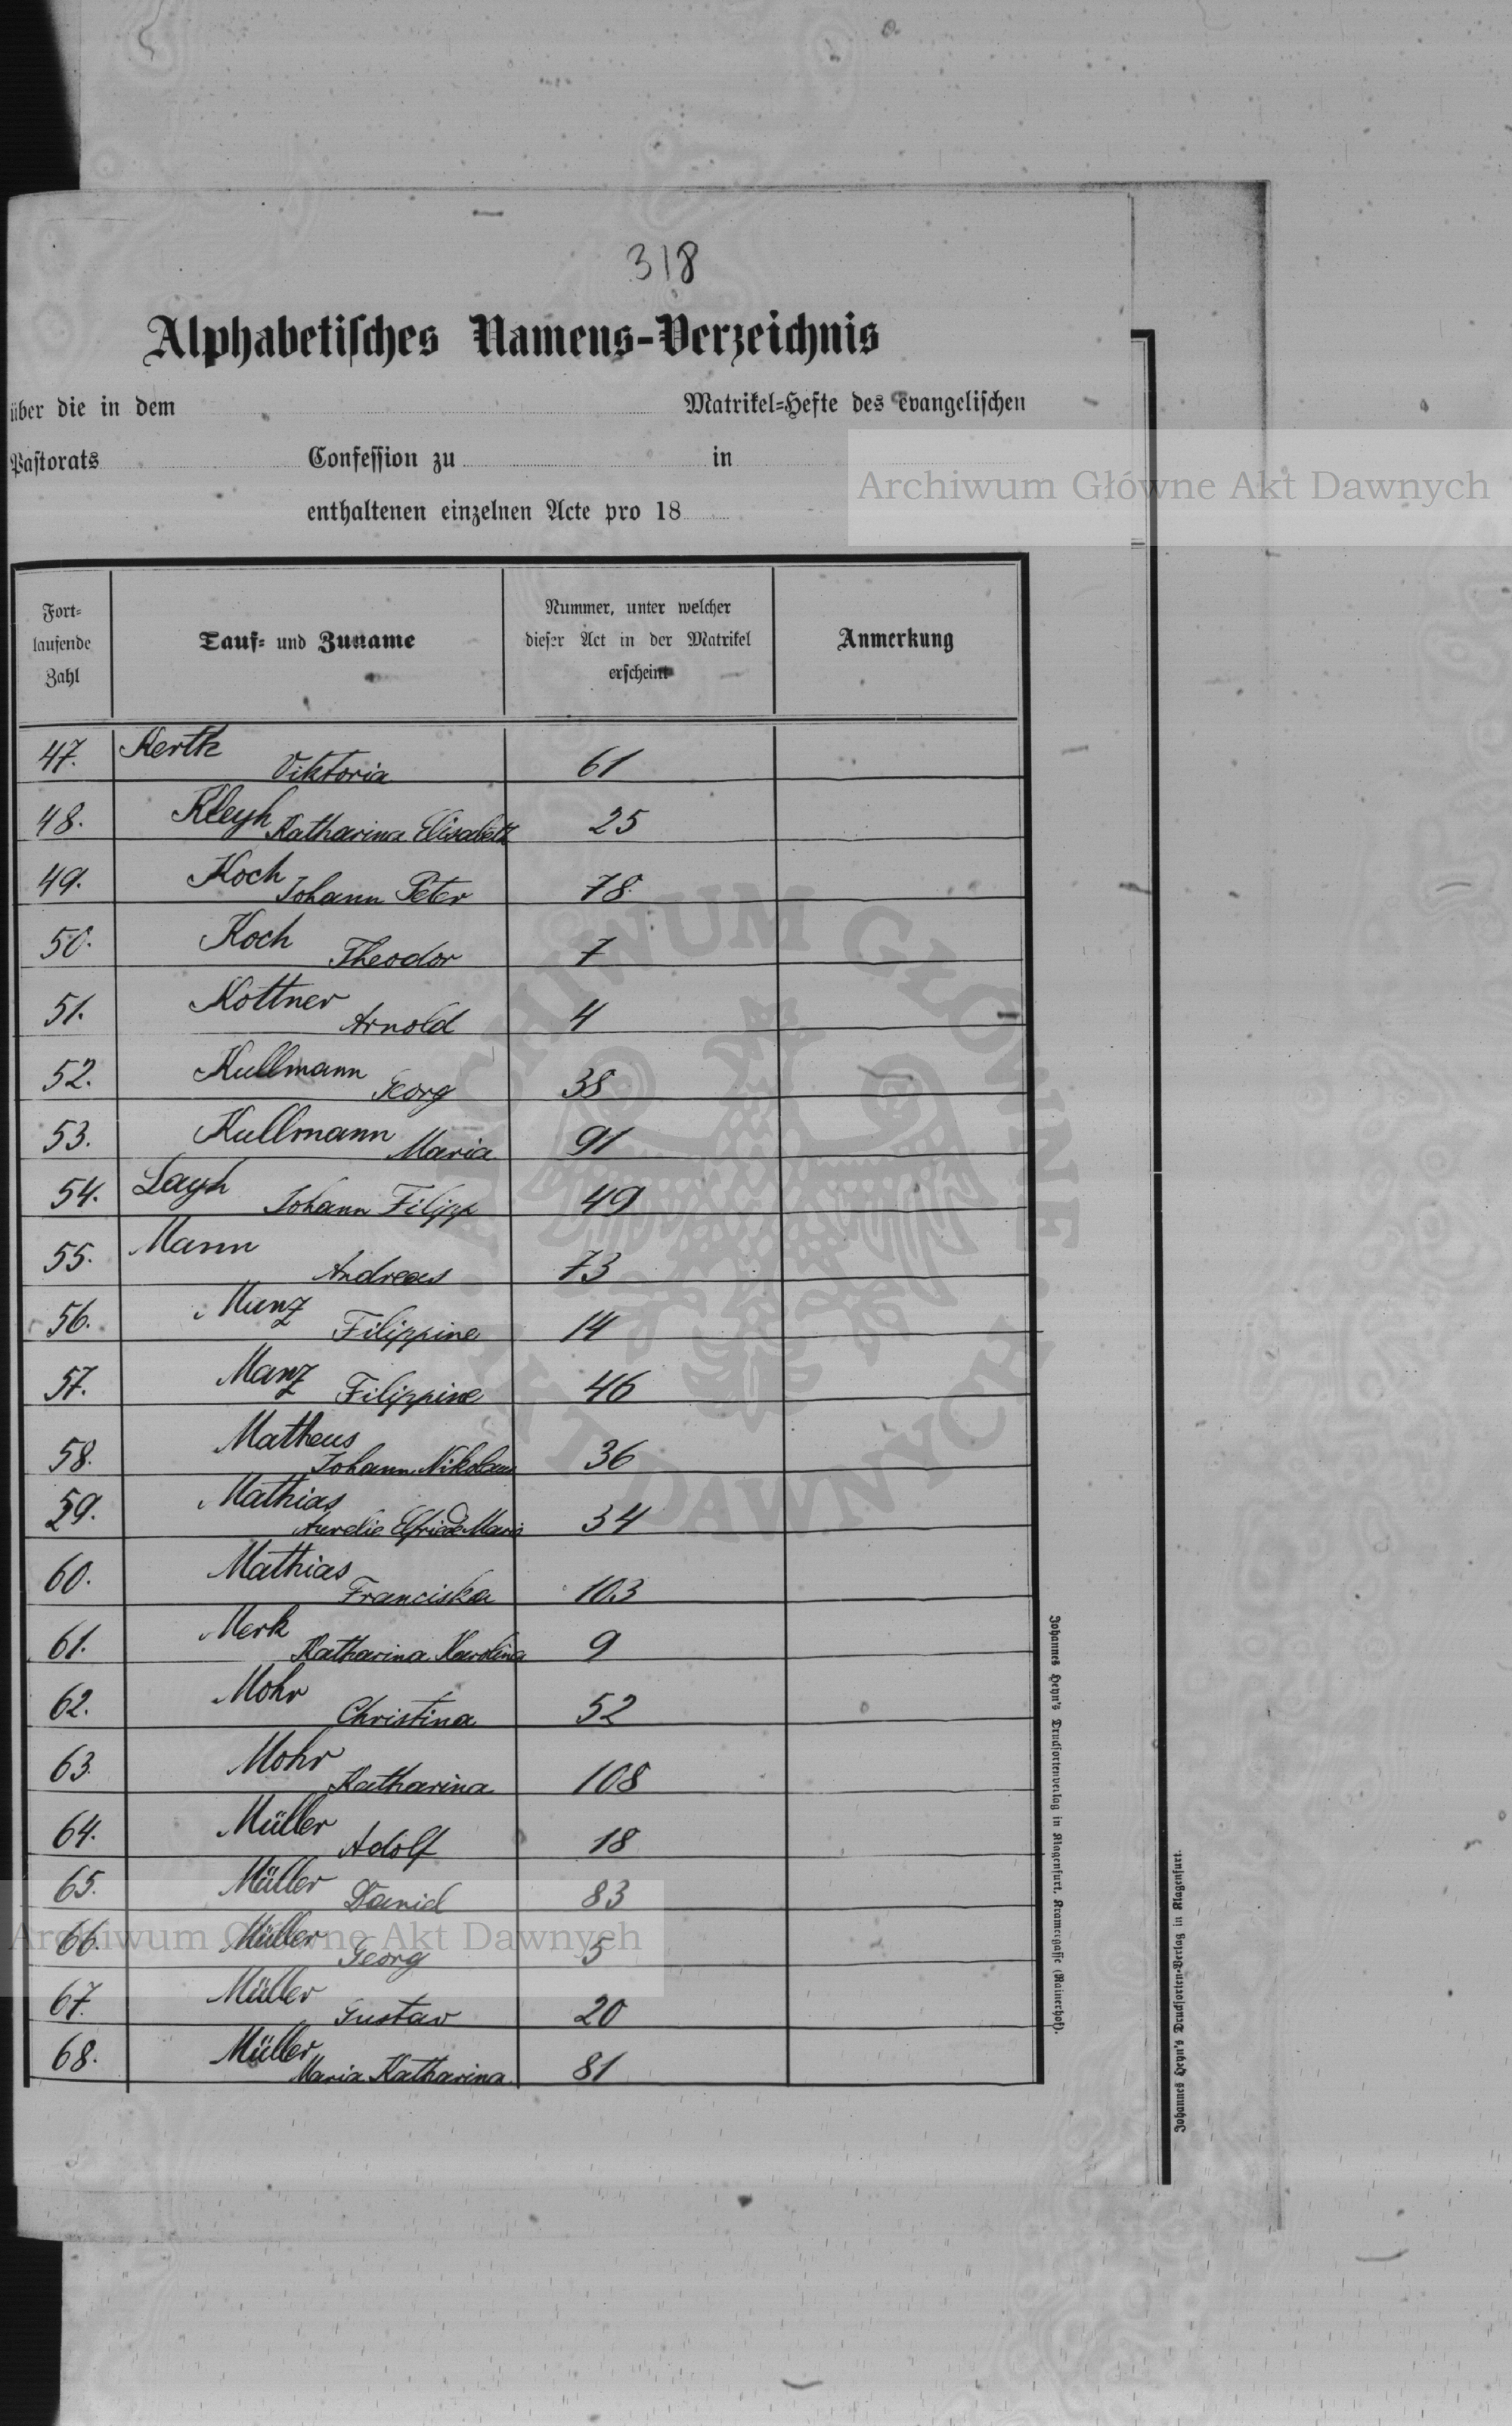 318
Alphabetisches Namens-Verzeichnis
über die in dem Matrikel-Hefte des evangelischen
Pastorats Confession zu in
enthaltenen einzelnen Acte pro 18
Archiwum Główne Akt Dawnych
Fort-
laufende
Zahl
Tauf- und Zuname
Nummer, unter welcher
dieser Act in der Matrikel
erscheint
Anmerkung
47. Kerth Viktoria 61
48. Kleyh Katharina Elisabeth 25
49. Koch Johann Peter 78.
50. Koch Theodor 7
51. Kottner Arnold 4
52. Kullmann Georg 38
53. Kullmann Maria 91
54. Layh Johann Filipp 49
55. Mann Andreas 73
56. Manz Filippine 14
57. Manz Filippine 46
58. Matheus Johann Nikolaus 36
59. Mathias Aurelie Elfriede Maria 34
60. Mathias Franciska 103
61. Merk Katharina Karolina 9
62. Mohr Christina 52
63. Mohr Katharina 108
64. Müller Adolf 18
65. Müller Daniel 83
66. Müller Georg 5
67. Müller Gustav 20
68. Müller Maria Katharina 81
Archiwum Główne Akt Dawnych
ARCHIWUM GŁÓWNE AKT DAWNYCH
Johannes Heyn's Drucksortenverlag in Klagenfurt, Kramergasse (Rainerhof).
Johannes Heyn's Drucksorten-Verlag in Klagenfurt.